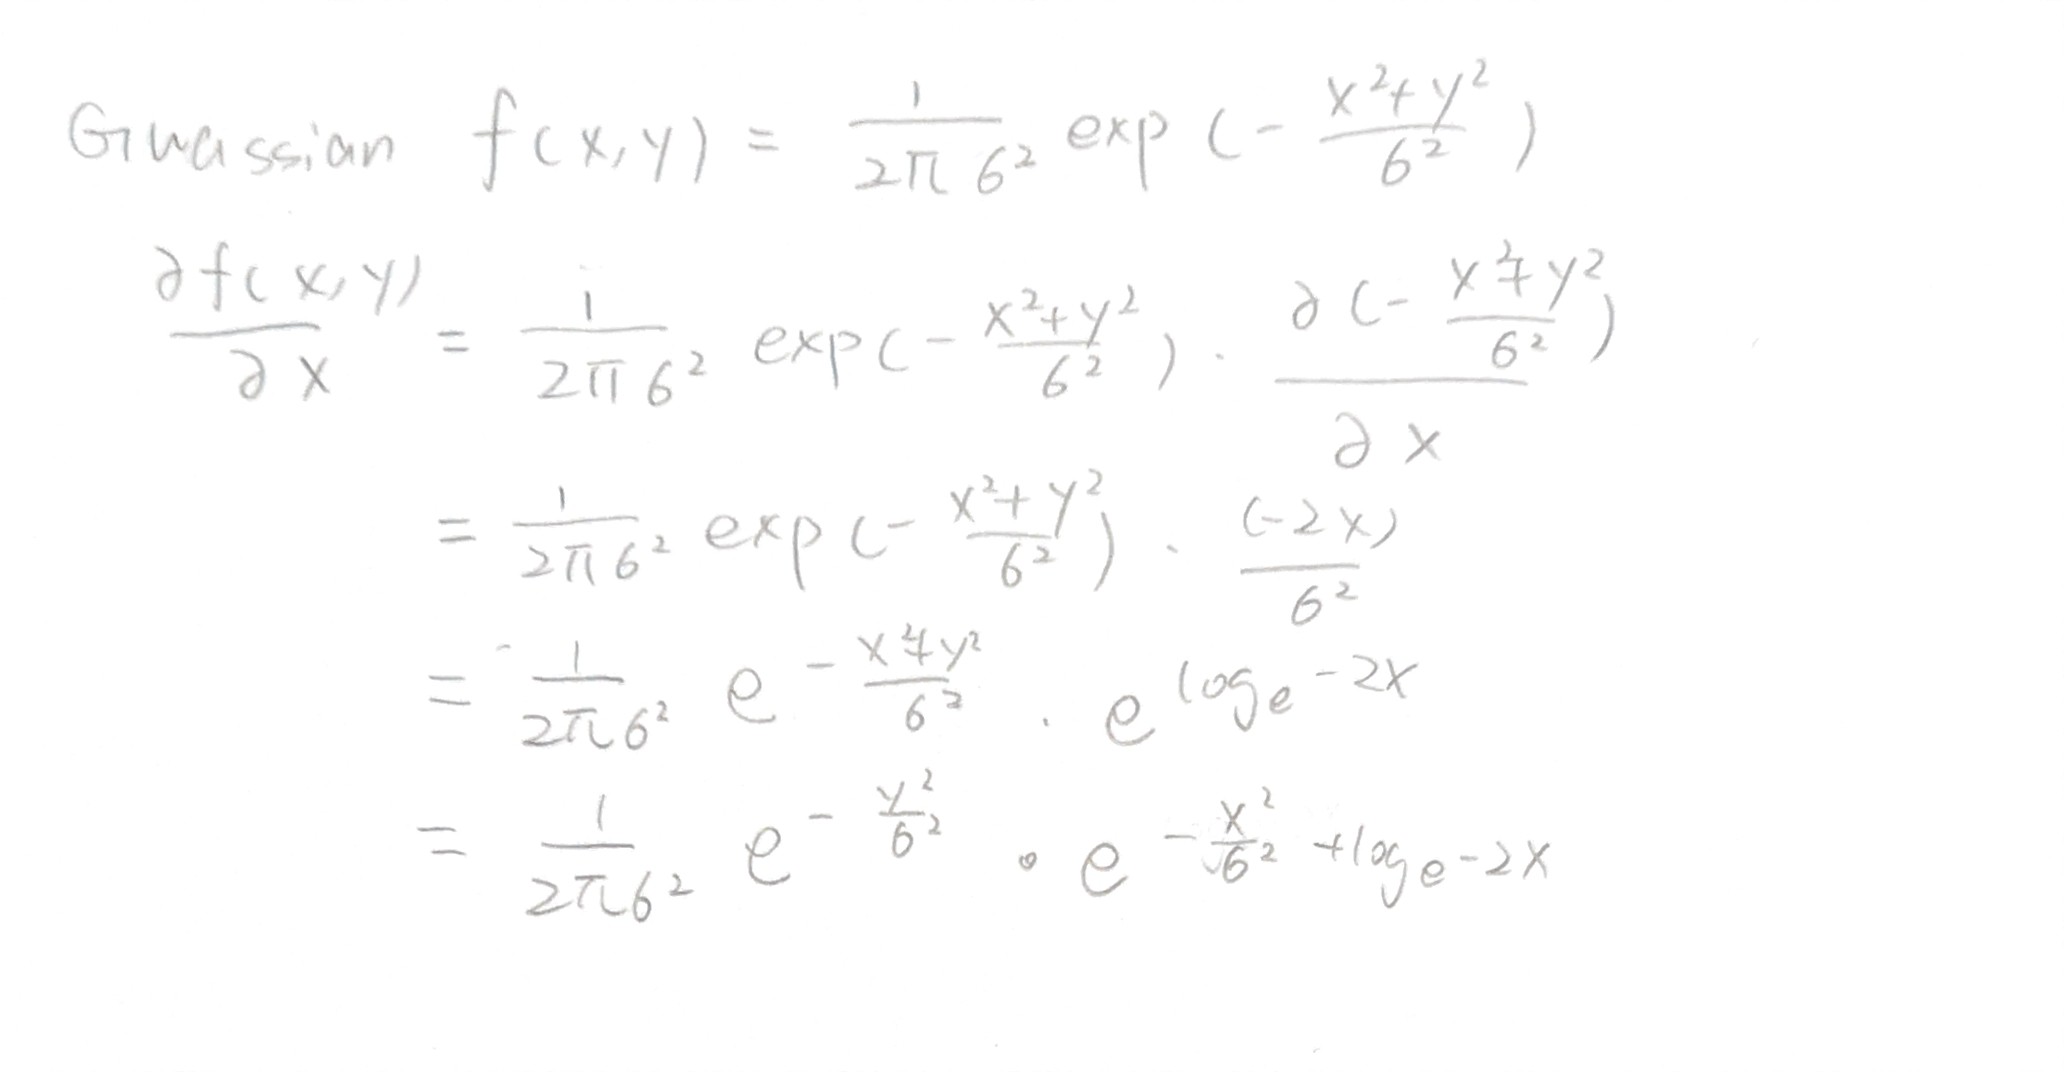 Guassian f(x,y) = 1/(2π6²) exp(- (x²+y²)/6²)
∂f(x,y)/∂x = 1/(2π6²) exp(- (x²+y²)/6²) · ∂(- (x²+y²)/6²)/∂x
= 1/(2π6²) exp(- (x²+y²)/6²) · (-2x)/6²
= 1/(2π6²) e^(- (x²+y²)/6²) · e^(log_e -2x)
= 1/(2π6²) e^(- y²/6²) · e^(- x²/6² + log_e -2x)